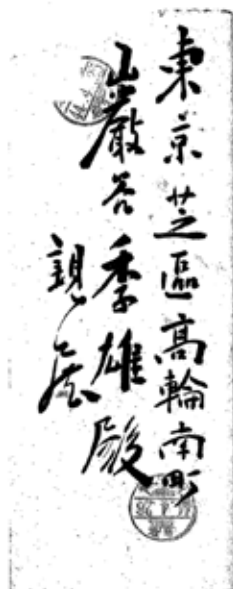 東京芝區高輪南町
巖谷季雄殿
親展